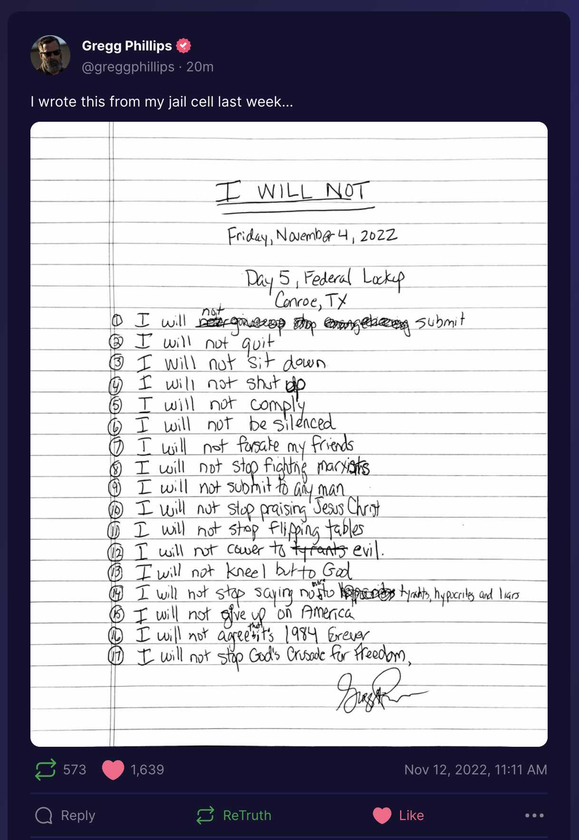 Gregg Phillips
@greggphillips · 20m
I wrote this from my jail cell last week...
I WILL NOT
Friday, November 4, 2022
Day 5, Federal Lockup
Conroe, TX
① I will not submit
② I will not quit
③ I will not sit down
④ I will not shut up
⑤ I will not comply
⑥ I will not be silenced
⑦ I will not forsake my friends
⑧ I will not stop fighting marxists
⑨ I will not submit to any man
⑩ I will not stop praising Jesus Christ
⑪ I will not stop flipping tables
⑫ I will not cower to tyrants evil.
⑬ I will not kneel but to God
⑭ I will not stop saying no to tyrants, hypocrites and liars
⑮ I will not give up on America
⑯ I will not agree that it's 1984 forever
⑰ I will not stop God's Crusade for freedom,
573 1,639 Nov 12, 2022, 11:11 AM
Reply ReTruth Like